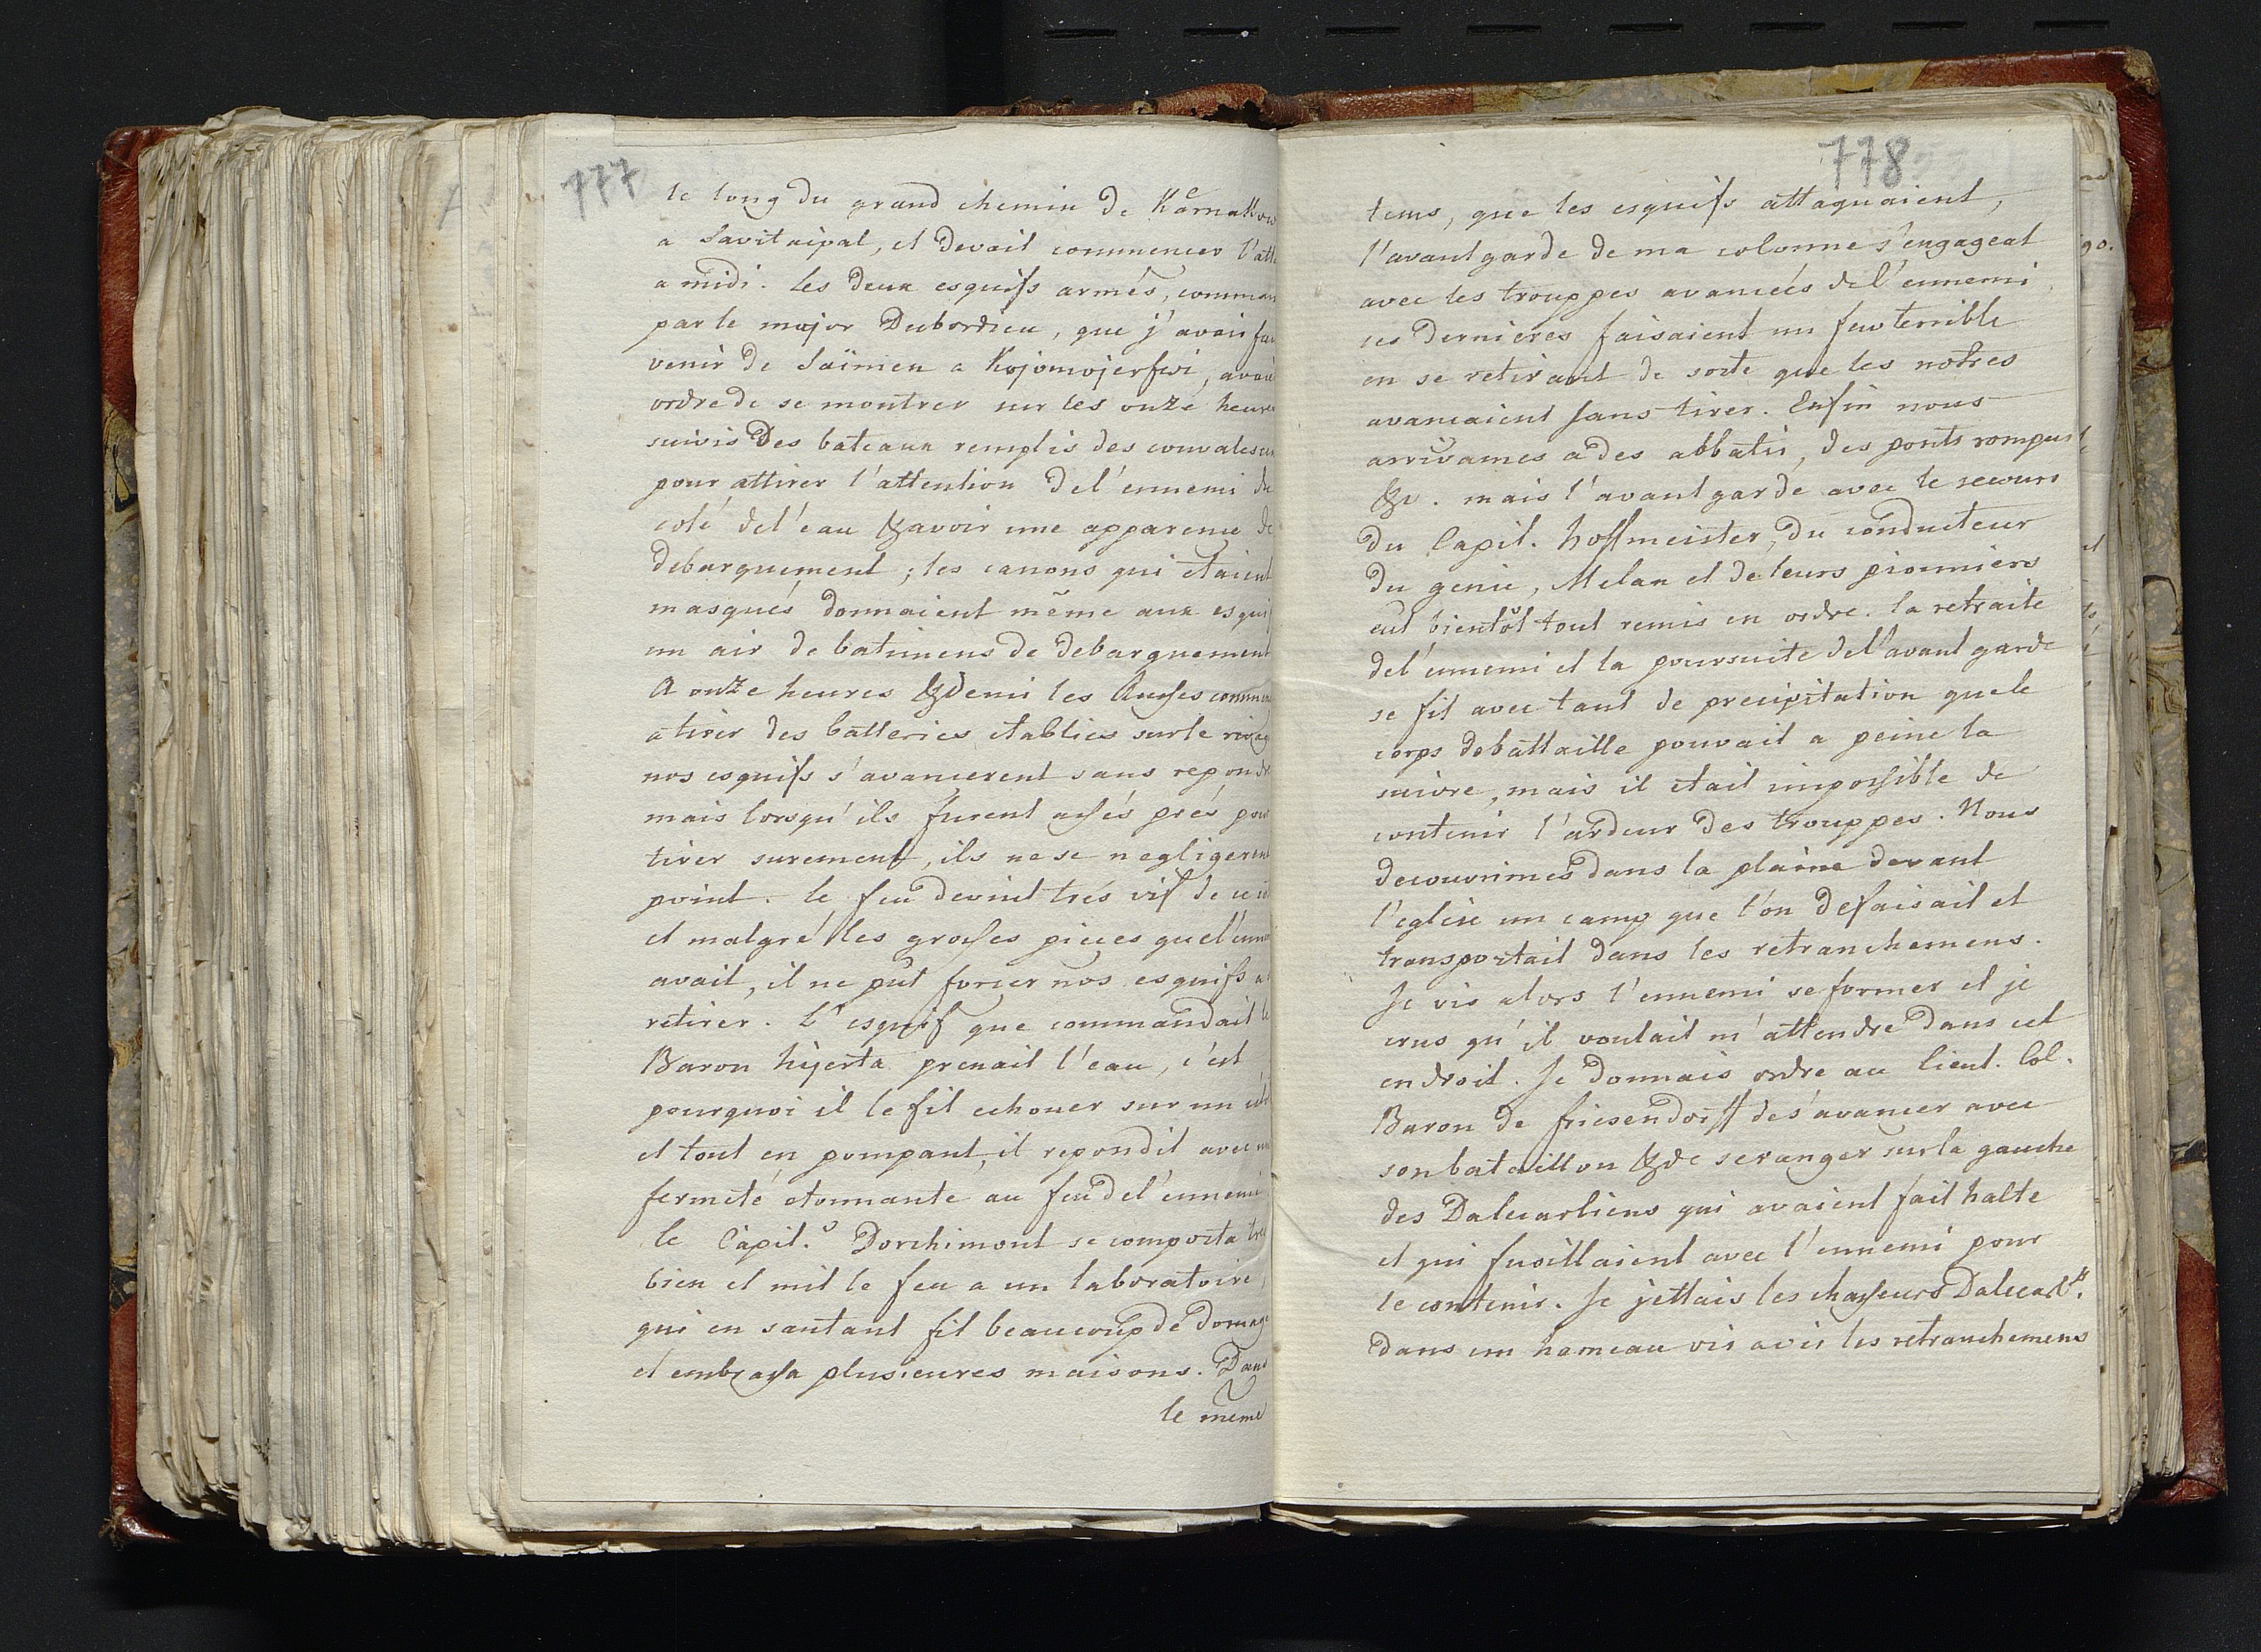 777
le long du grand chemin de
a Savitaipal, et devait commencer
a midi. Les deux esquifs armés,
par le major Dubordieu, que j'avais
venir de Saïmen a Kojomojerfwi,
ordre de se montrer sur les onze
suivis des bateaux remplis des
pour attirer l'attention del'ennemi du
coté del'eau & avoir une apparence de
debarquement; les canons qui etaient
masqués donnaient même aux
un air de batimens de debarquement
A onze heures & demi les Rußes
a tirer des batteries etablies sur le
nos esquifs s'avancerent sans
mais lorsqu'ils furent aßés prés pour
tirer surement, ils ne se negligerent
point. le feu devint trés vif de ce
et malgré les großes pieces que
avait, il ne pût forcer nos esquifs a
retirer. L'esquif que commandait le
Baron hijerta prenait l'eau, c'est
pourquoi il le fit echouer sur un
et tout en pompant, il repondit avec
fermeté etonnante au feu del'ennemi
le Capit.º Dorchimont se comporta
bien et mit le feu a un laboratoire,
qui en sautant fit beaucoup de
et embraßa plusieures maisons. Dans
le même
778
tems, que les esquifs attaquaient,
l'avantgarde de ma colonne s'engageat
avec les trouppes avancés del'ennemi,
ces dernieres faisaient un feu terrible
en se retirant de sorte que les notres
avancaient sans tirer. Enfin nous
arrivames a des abbatis, des ponts rompus
&c. mais l'avantgarde avec le secours
du Capit. hoffmeister, du conducteur
du genie, Melan et de leurs pionniers
eut bientôt tout remis en ordre. la retraite
del'ennemi et la poursuite del'avant garde
se fit avec tant de precipitation que le
corps debattaille pouvait a peine la
suivre, mais il etait impoßible de
contenir l'ardeur des trouppes. Nous
decouvrimes dans la plaine devant
l'eglise un camp que l'on defaisait et
transportait dans les retranchemens.
Je vis alors l'ennemi se former et je
crus qu'il voulait m'attendre dans cet
endroit. Je donnais ordre au lieut. Col.
Baron de friesendorff de s'avancer avec
son bataillon & de seranger sur la gauche
des Dalecarliens qui avaient fait halte
et qui fusillaient avec l'ennemi pour
le contenir. Je jettais les chaßeurs
dans un hameau vis avis les retranchemens